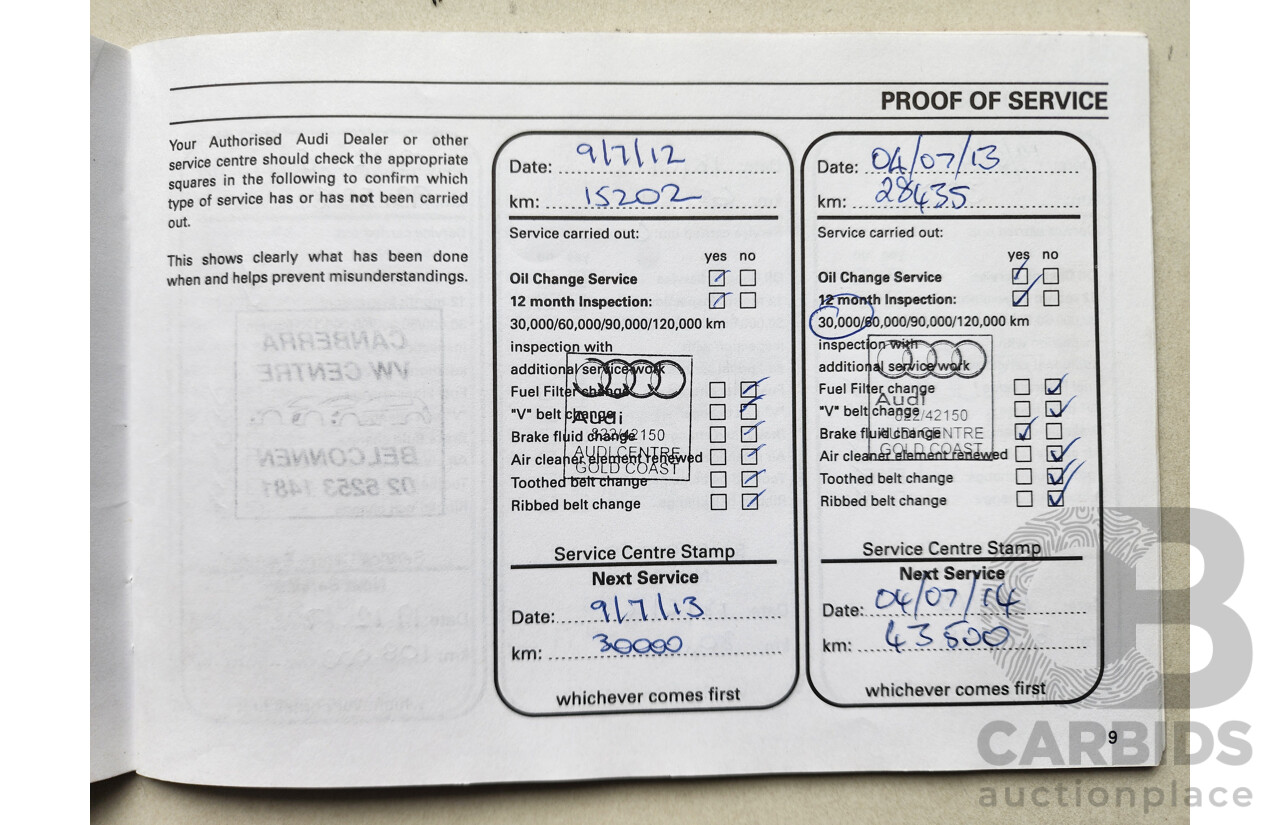 PROOF OF SERVICE
Your Authorised Audi Dealer or other
service centre should check the appropriate
squares in the following to confirm which
type of service has or has not been carried
out.
This shows clearly what has been done
when and helps prevent misunderstandings.
CANBERRA
VW CENTRE
BELCONNEN
02 6253 1481
Date: 9/7/12
km: 15202
Service carried out:
yes no
Oil Change Service
12 month Inspection:
30,000/60,000/90,000/120,000 km
inspection with
additional service work
Fuel Filter change
"V" belt change
Brake fluid change
Air cleaner element renewed
Toothed belt change
Ribbed belt change
Audi
822/42150
AUDI CENTRE
GOLD COAST
Service Centre Stamp
Next Service
Date: 9/7/13
km: 30000
whichever comes first
Date: 04/07/13
km: 28435
Service carried out:
yes no
Oil Change Service
12 month Inspection:
30,000/60,000/90,000/120,000 km
inspection with
additional service work
Fuel Filter change
"V" belt change
Brake fluid change
Air cleaner element renewed
Toothed belt change
Ribbed belt change
Audi
822/42150
AUDI CENTRE
GOLD COAST
Service Centre Stamp
Next Service
Date: 04/07/14
km: 43500
whichever comes first
9
CB
CARBIDS
auctionplace